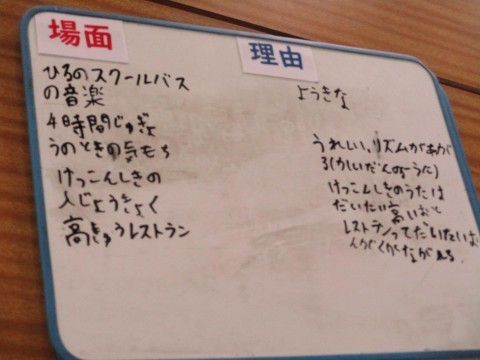 場面
ひるのスクールバス
の音楽
4時間じゅぎょ
うのときの気もち
けっこんしきの
人じょうきょく
高きゅうレストラン
理由
ようきな
うれしい、リズムがあが
る(かしいだんのようなに)
けっこんしきのうたは
だいたい高いおと
レストランってだいたいお
んがくがながれる